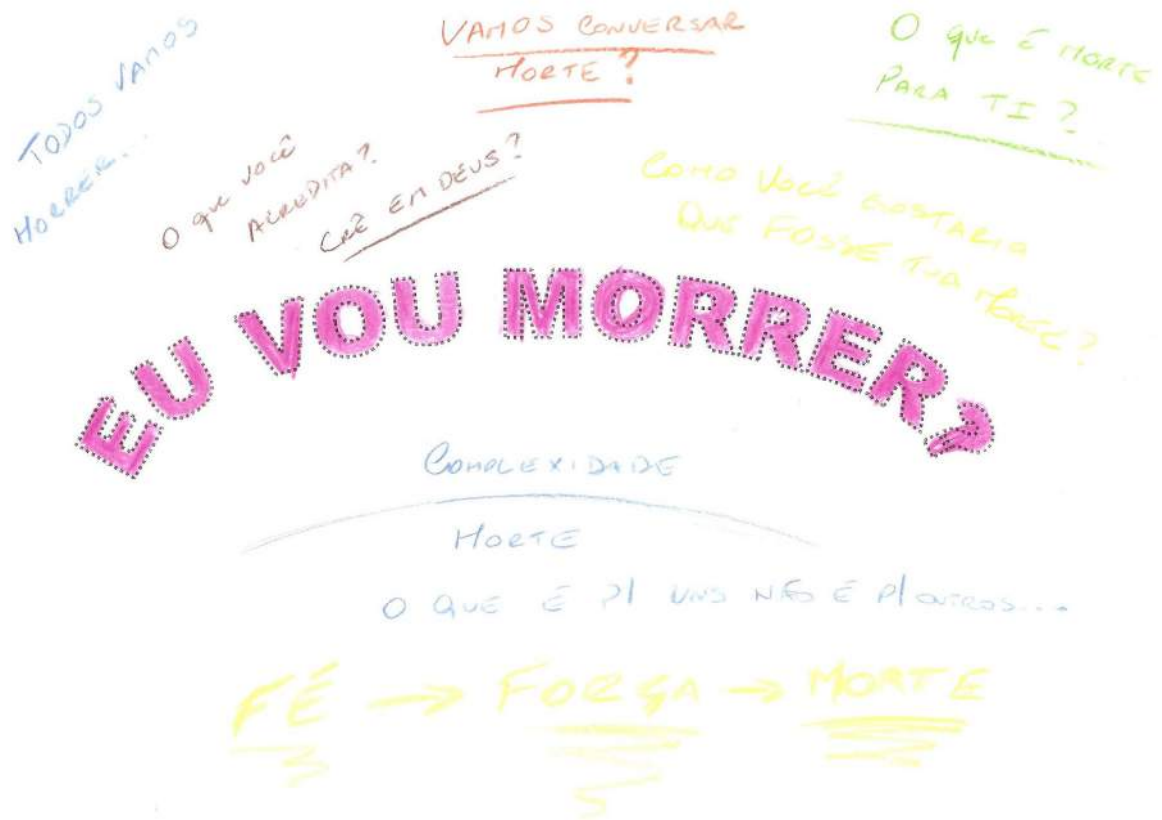 TODOS VAMOS
MORRER...
VAMOS CONVERSAR
MORTE?
O que é MORTE
PARA TI?
O que você
ACREDITA?
CRÊ EM DEUS?
COMO VOCÊ GOSTARIA
QUE FOSSE TUA MORTE?
EU VOU MORRER?
COMPLEXIDADE
MORTE
O QUE É P/ UNS NÃO É P/ OUTROS...
FÉ → FORÇA → MORTE